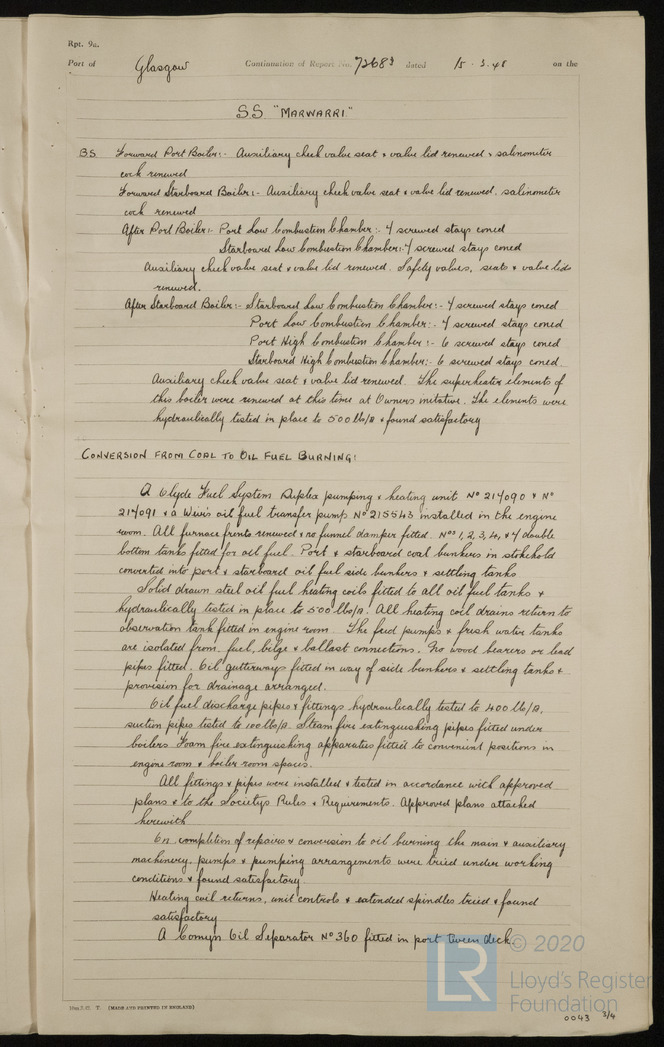 Rpt. 9a.
Port of Glasgow Continuation of Report No. 72683 dated 15. 3. 48 on the
S.S "MARWARRI"
B.S. Forward Port Boiler:- Auxiliary check valve seat & valve lid renewed & salinometer
cock renewed
Forward Starboard Boiler:- Auxiliary check valve seat & valve lid renewed, salinometer
cock renewed
After Port Boiler:- Port Low Combustion Chamber:- 4 screwed stays coned
Starboard Low Combustion Chamber:- 4 screwed stays coned
Auxiliary check valve seat & valve lid renewed. Safety valves, seats & valve lids
renewed.
After Starboard Boiler:- Starboard Low Combustion Chamber:- 4 screwed stays coned
Port Low Combustion Chamber:- 4 screwed stays coned
Port High Combustion Chamber:- 6 screwed stays coned
Starboard High Combustion Chamber:- 6 screwed stays coned.
Auxiliary check valve seat & valve lid renewed. The superheater elements of
this boiler were renewed at this time at Owners initative. The elements were
hydraulically tested in place to 500 lb/□ & found satisfactory
CONVERSION FROM COAL TO OIL FUEL BURNING:
A Clyde Fuel System Duplex pumping & heating unit No 214090 & No
214091 & a Weirs oil fuel transfer pump No 215543 installed in the engine
room. All furnace fronts renewed & no funnel damper fitted. Nos 1, 2, 3, 4, & 7 double
bottom tanks fitted for oil fuel. Port & starboard coal bunkers in stokehold
converted into port & starboard oil fuel side bunkers & settling tanks
Solid drawn steel oil fuel heating coils fitted to all oil fuel tanks &
hydraulically tested in place to 500 lbs/□. All heating coil drains return to
observation tank fitted in engine room. The feed pumps & fresh water tanks
are isolated from fuel, bilge & ballast connections. No wood bearers or lead
pipes fitted. Oil gutterways fitted in way of side bunkers & settling tanks &
provision for drainage arranged.
Oil fuel discharge pipes & fittings hydraulically tested to 400 lb/□,
suction pipes tested to 100 lbs/□. Steam fire extinguishing pipes fitted under
boilers Foam fire extinguishing apparatus fitted to convenient positions in
engine room & boiler room spaces.
All fittings & pipes were installed & tested in accordance with approved
plans & to the Societys Rules & Requirements. Approved plans attached
herewith
On completion of repairs & conversion to oil burning the main & auxiliary
machinery, pumps & pumping arrangements were tried under working
conditions & found satisfactory.
Heating coil returns, unit controls & extended spindles tried & found
satisfactory
A Comyn Oil Separator No 360 fitted in port tween deck.
(MADE AND PRINTED IN ENGLAND)
LR © 2020
Lloyd's Register
Foundation
0043 3/4